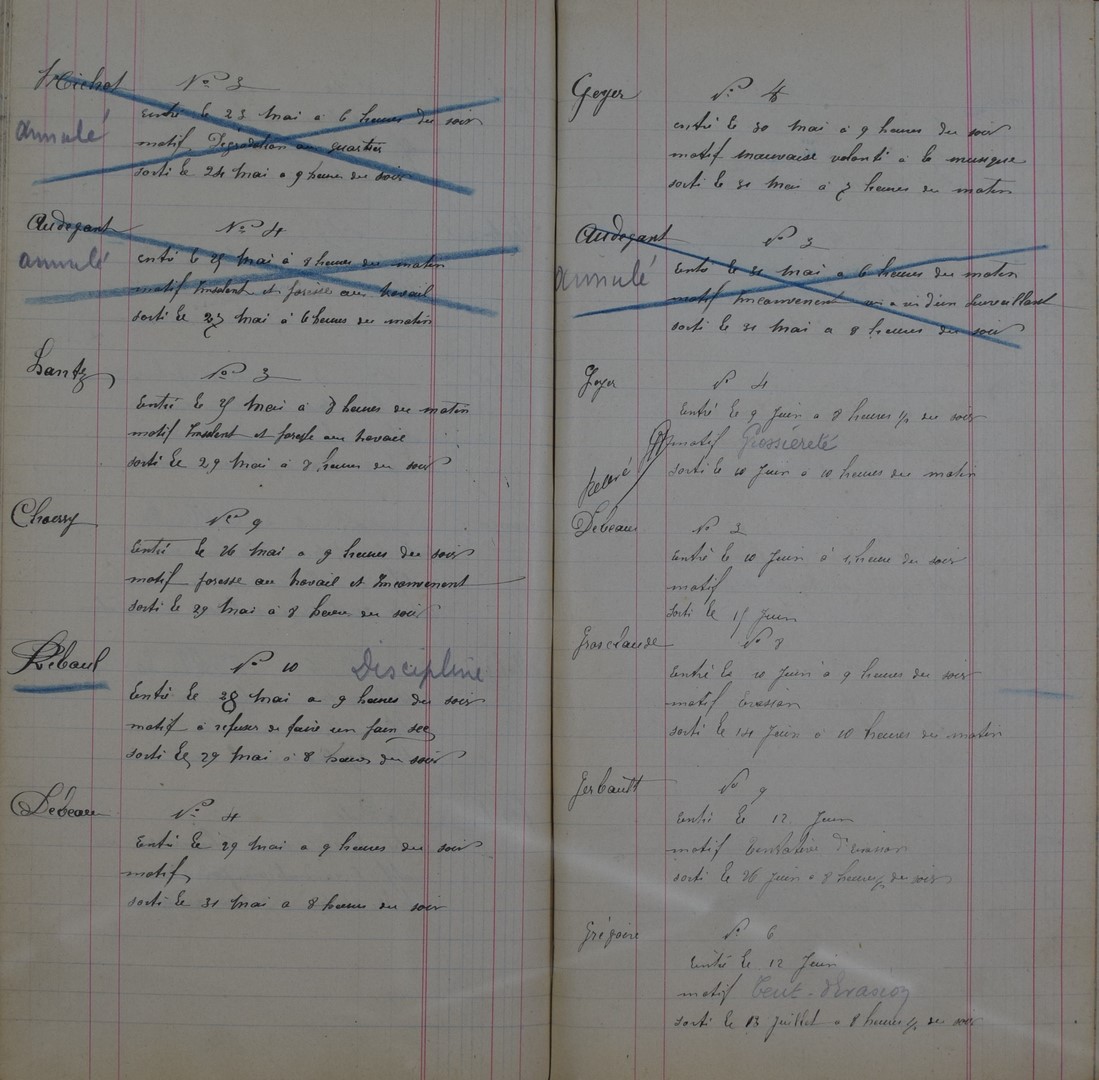 Michot N° 3
annulé
entré le 23 Mai à 6 heures du soir
motif Dégradation au quartier
sorti le 24 Mai a 9 heures du soir
Audogant N° 4
annulé
entré le 25 Mai à 8 heures du matin
motif Insolent et paresse au travail
sorti le 27 Mai à 6 heures du matin
Lantz N° 3
Entré le 25 Mai à 8 heures du matin
motif Insolent et paresse au travail
sorti le 29 Mai à 8 heures du soir
Choessy N° 9
Entré le 26 Mai a 9 heures du soir
motif paresse au travail et Inconvenent
sorti le 29 Mai à 8 heures du soir
Rébaul N° 10 Discipline
Entré le 28 Mai a 9 heures du soir
motif à refuser de faire un pain sec
sorti le 29 Mai à 8 heures du soir
Débeau N° 4
Entré le 29 Mai a 9 heures du soir
motif
sorti le 31 Mai a 8 heures du soir
Goyer N° 4
entré le 30 Mai à 9 heures du soir
motif mauvaise volonté à la musique
sorti le 31 Mai à 7 heures du matin
Audogant N° 3
annulé
Entré le 31 Mai a 6 heures du matin
motif Inconvenent vis a vis d'un surveillant
sorti le 31 Mai a 8 heures du soir
Goyer N° 4
Entré le 9 Juin a 8 heures ½ du soir
motif Grossièreté
sorti le 10 Juin a 10 heures du matin
Débeau N° 3
Entré le 10 Juin à 1 heure du soir
motif
sorti le 15 Juin
Grosclaude N° 8
Entré le 10 Juin à 9 heures du soir
motif Evasion
sorti le 14 Juin à 10 heures du matin
Gerbault N° 9
Entré le 12 Juin
motif tentative d'évasion
sorti le 26 Juin a 8 heures ½ du soir
Grégoire N° 6
Entré le 12 Juin
motif Tent. d'Evasion
sorti le 13 Juillet a 8 heures ½ du soir